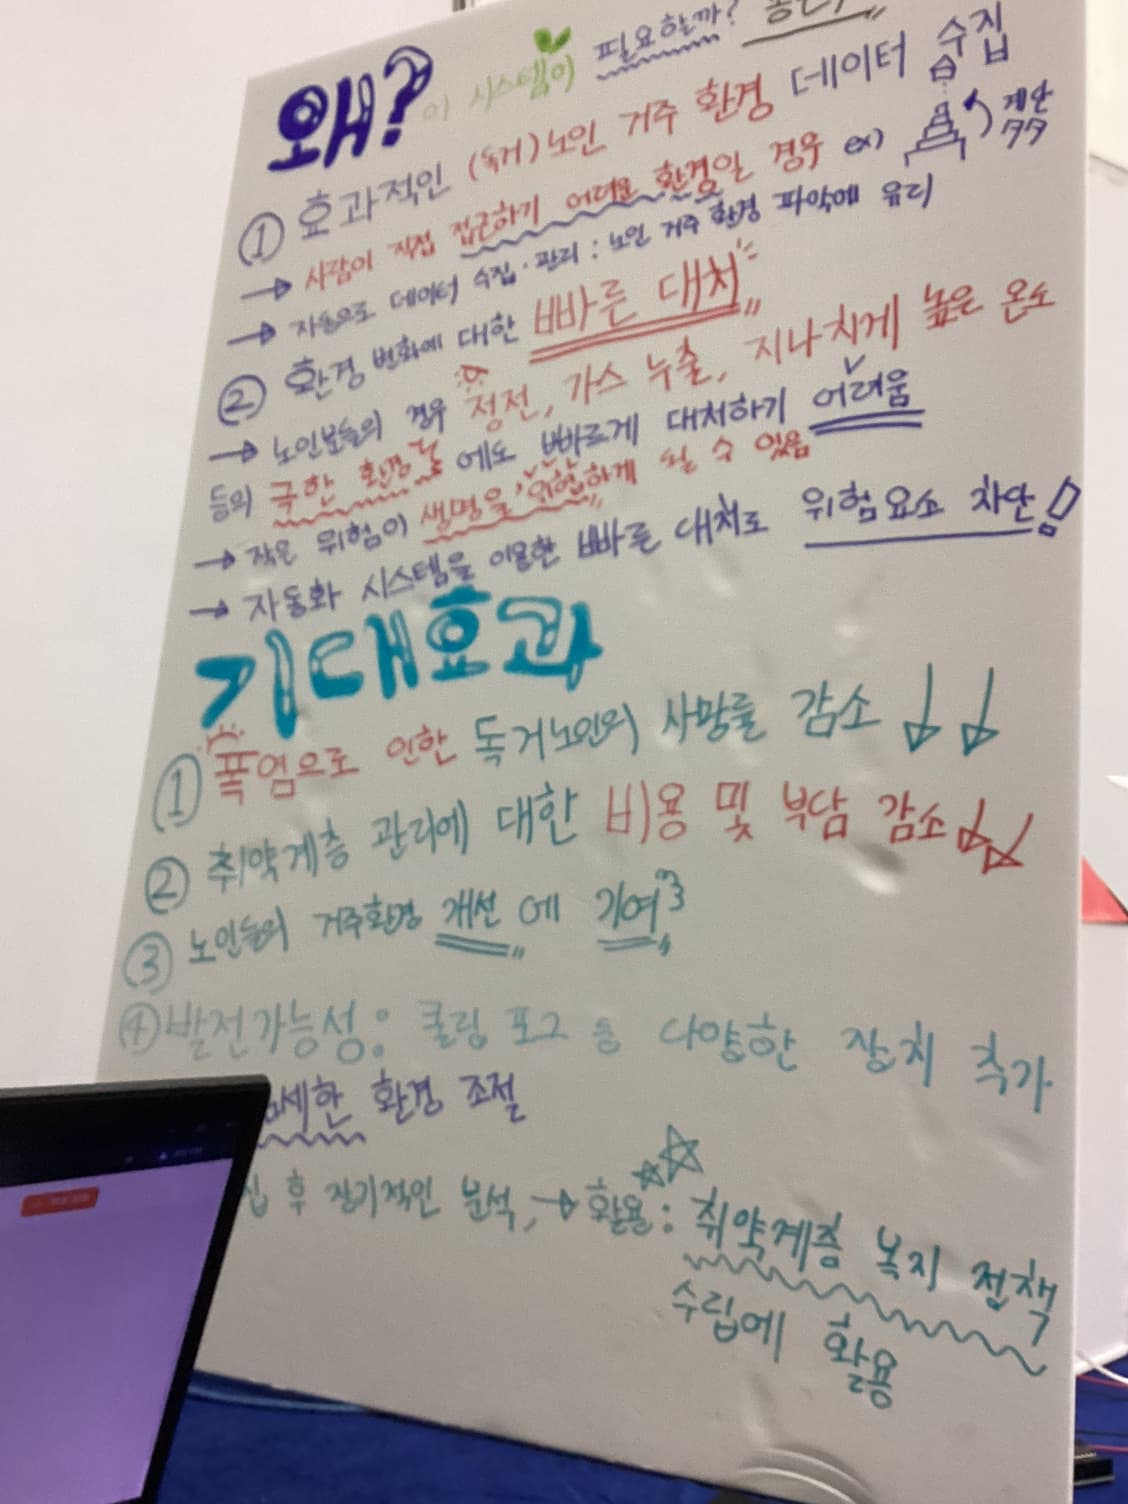 왜? 이 시스템이 필요할까?
① 효과적인 (독거)노인 거주 환경 데이터 수집
→ 사람이 직접 접근하기 어려운 환경일 경우 ex) 계단
→ 자동으로 데이터 수집·관리 : 노인 거주 환경 파악에 유리
② 환경 변화에 대한 빠른 대처
→ 노인분들의 경우 정전, 가스 누출, 지나치게 높은 온도
등의 극한 환경 에도 빠르게 대처하기 어려움
→ 작은 위험이 생명을 위협하게 될 수 있음
→ 자동화 시스템을 이용한 빠른 대처로 위험요소 차단!
기대효과
① 폭염으로 인한 독거노인의 사망률 감소 ↓↓
② 취약계층 관리에 대한 비용 및 부담 감소↓↓
③ 노인들의 거주환경 개선 에 기여
④ 발전가능성: 쿨링 포그 등 다양한 장치 추가
세한 환경 조절
집 후 장기적인 분석, → 활용: 취약계층 복지 정책
수립에 활용